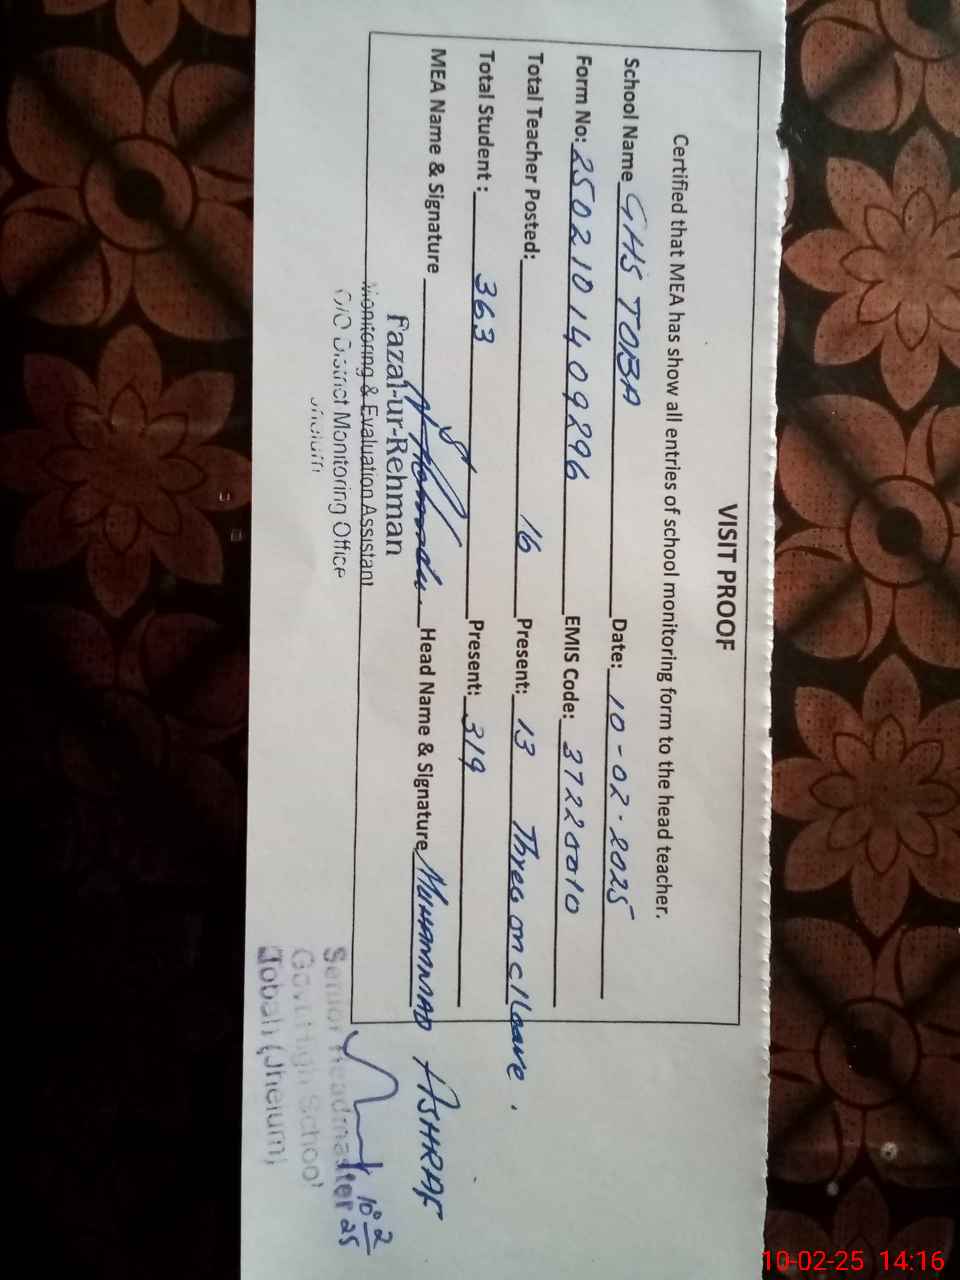 VISIT PROOF
Certified that MEA has show all entries of school monitoring form to the head teacher.
School Name GHS TOBA Date: 10-02-2025
Form No: 2502101409896 EMIS Code: 37220010
Total Teacher Posted: 16 Present: 13 Three on c/leave.
Total Student : 363 Present: 319
MEA Name & Signature Head Name & Signature MUHAMMAD ASHRAF
Fazal-ur-Rehman
Monitoring & Evaluation Assistant
O/O District Monitoring Office
Jhelum
Senior Headmaster
Govt. High School
Tobah (Jhelum)
10 2 25
10-02-25 14:16